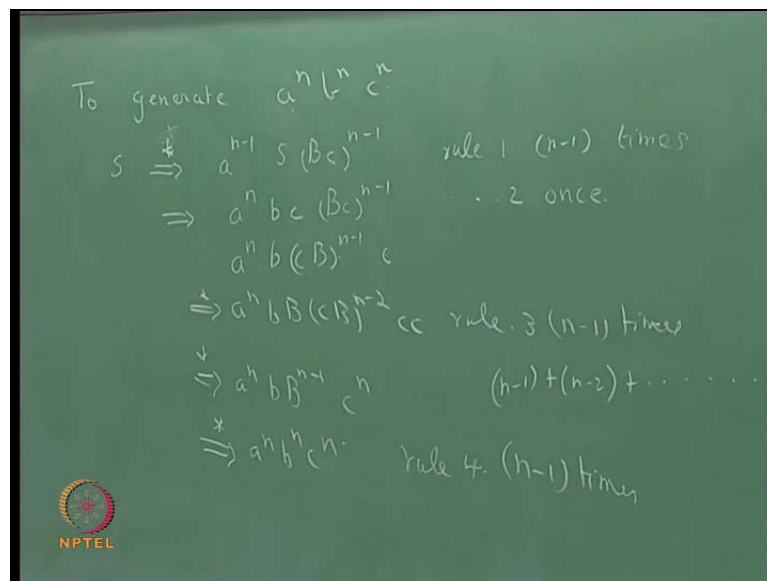 To generate aⁿ bⁿ cⁿ.
S ⇒* aⁿ⁻¹ S (Bc)ⁿ⁻¹ rule 1 (n-1) times
⇒ aⁿ b c (Bc)ⁿ⁻¹ .. 2 once.
aⁿ b (cB)ⁿ⁻¹ c
⇒* aⁿ b B (cB)ⁿ⁻² cc rule. 3 (n-1) times
⇒* aⁿ b Bⁿ⁻¹ cⁿ (n-1) + (n-2) + ........
⇒* aⁿ bⁿ cⁿ. rule 4. (n-1) times
NPTEL